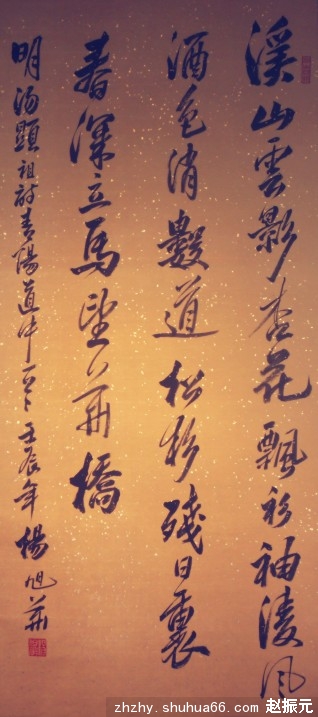 溪山雲影杏花飄衫袖淩風
酒色消數道松杉殘日裏
春深立馬望華橋
明湯顯祖詩青陽道中一首壬辰年楊旭華
zhzhy.shuhua66.com 赵振元